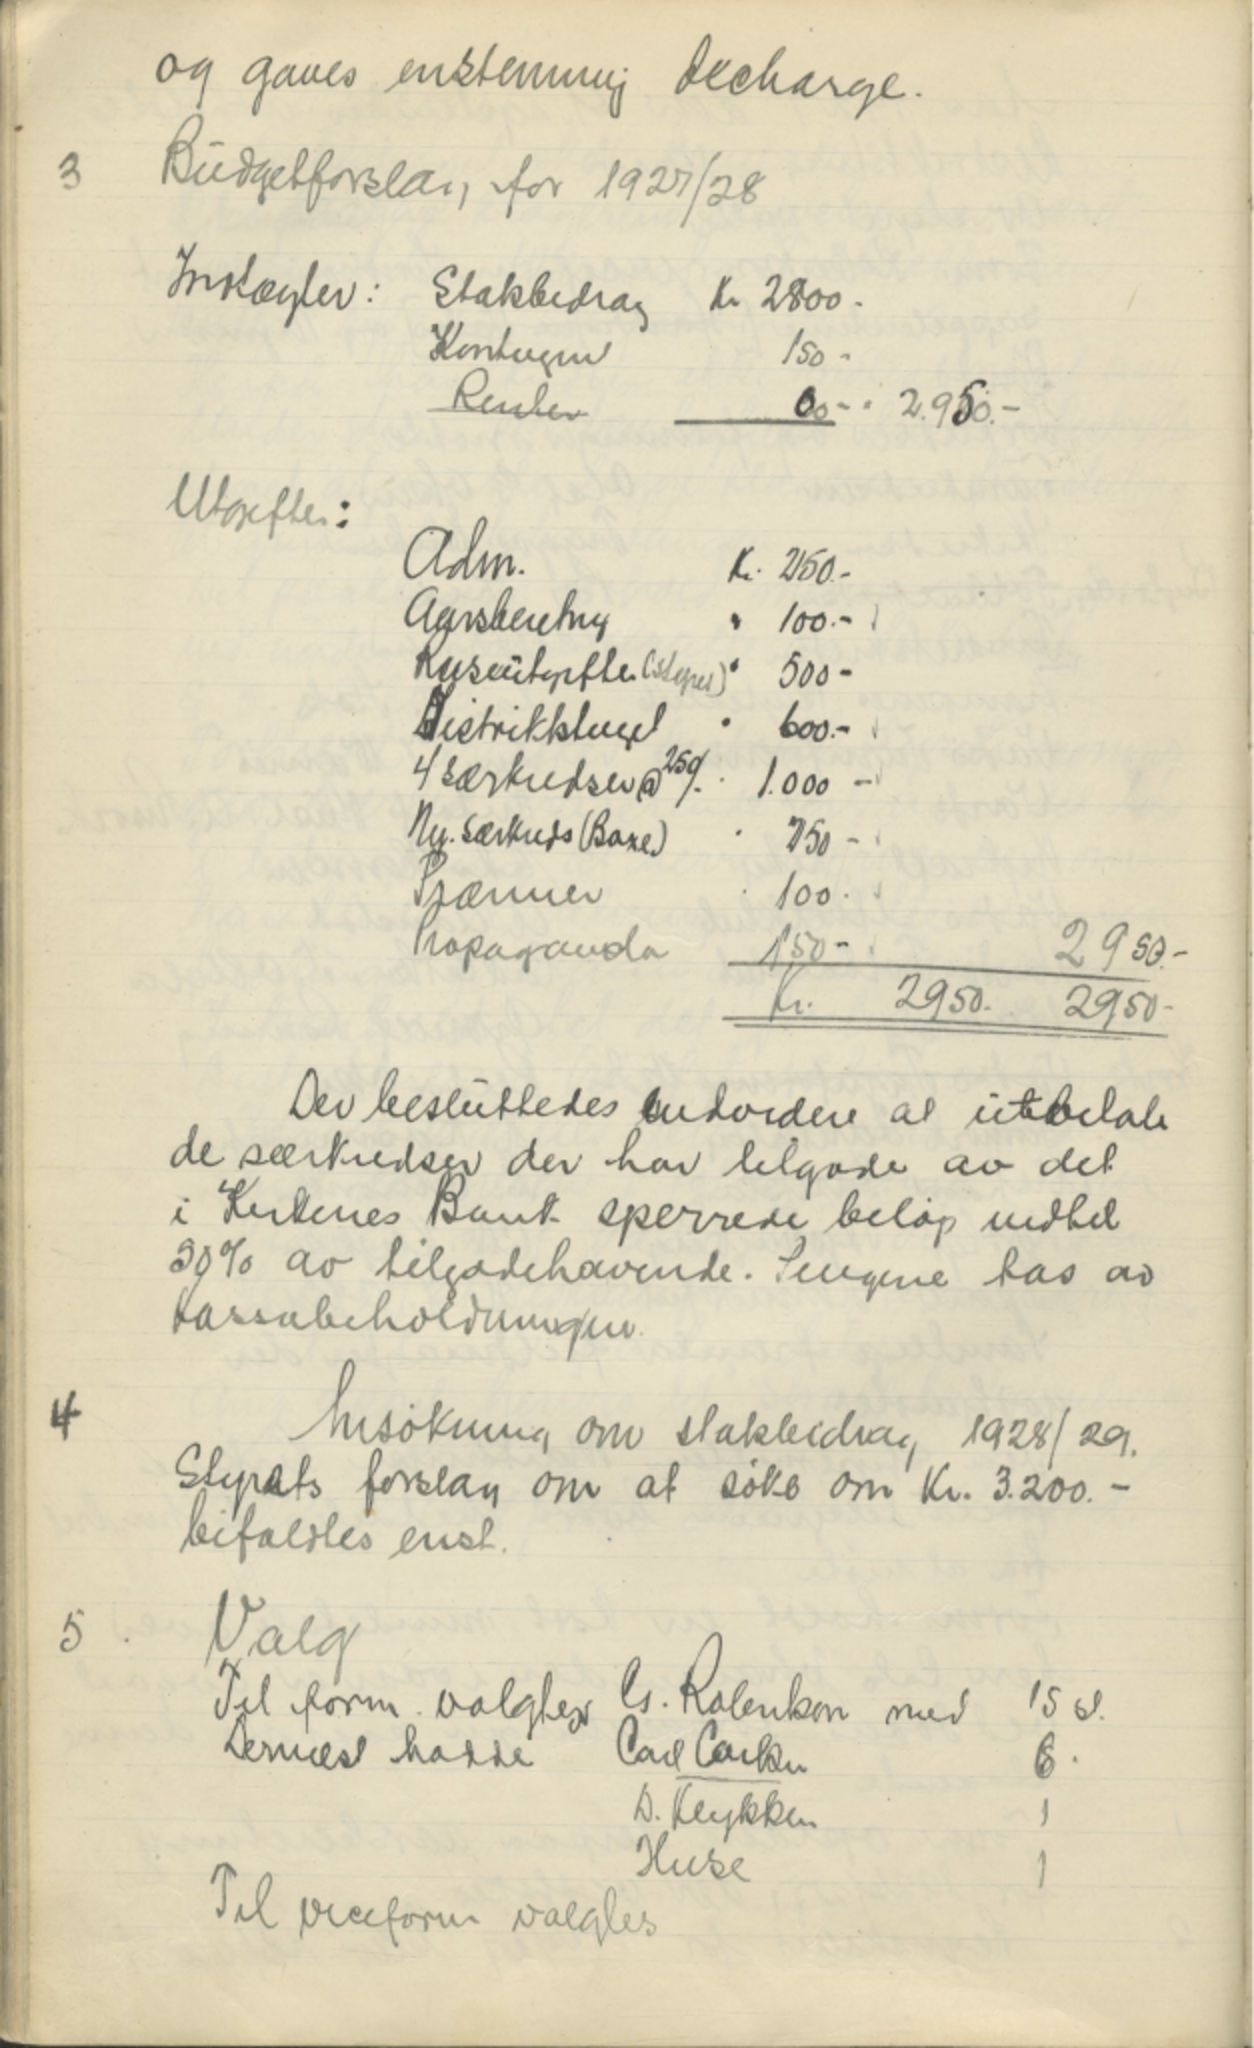 og gaves enstemmig decharge.
3 Budgetforslag for 1927/28
Indtægter: Statsbidrag Kr 2800.-
Kontingent 150.-
Renter 00.- " 2.950.-
Utgifter:
Adm. Kr. 250.-
Aarsberetning " 100.-
Reiseutgifter (styret) " 500-
Distriktstinget " 600.-
4 særkredser @ 250/- " 1.000-
Ny. særkreds (Boxe) " 250-
Præmier " 100.
Propaganda 150- 2950.-
Kr. 2950. 2950-
Der besluttedes at utbetale
de særkredser der har tilgode av det
i Kirkenes Bank sperrede beløp indtil
50% av tilgodehavende. Pengene tas av
kassabeholdningen.
4 Ansøkning om statsbidrag 1928/29.
Styrets forslag om at søke om Kr. 3.200.-
bifaldtes enst.
5. Valg
Til form. valgtes med 15 st.
Dernæst hadde Carl 6.
D. Klykken 1
Huse 1
Til viceform valgtes